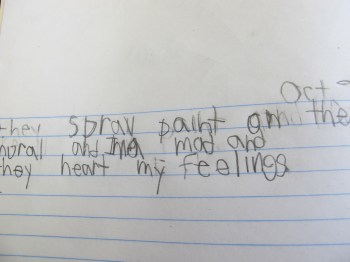 Oct
they spray paint on the
moral and mad and
they heart my feelings